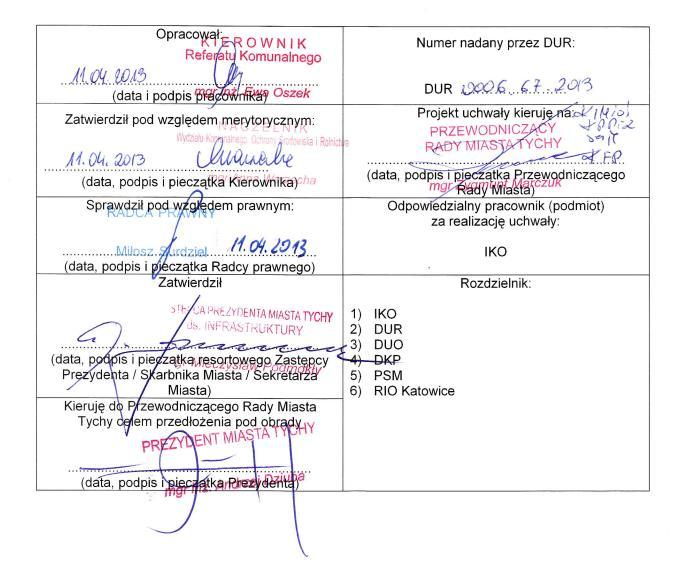 Opracował:
KIEROWNIK
Referatu Komunalnego
11.04.2013
mgr inż. Ewa Oszek
(data i podpis pracownika)
Numer nadany przez DUR:
DUR 0006.67.2013
Zatwierdził pod względem merytorycznym:
NACZELNIK
Wydziału Komunalnego, Ochrony Środowiska i Rolnictwa
11.04.2013
(data, podpis i pieczątka Kierownika)
Projekt uchwały kieruję na:
PRZEWODNICZĄCY
RADY MIASTA TYCHY
(data, podpis i pieczątka Przewodniczącego
mgr Zygmunt Marczuk
Rady Miasta)
Sprawdził pod względem prawnym:
RADCA PRAWNY
Miłosz Surdziel 11.04.2013
(data, podpis i pieczątka Radcy prawnego)
Odpowiedzialny pracownik (podmiot)
za realizację uchwały:
IKO
Zatwierdził
ZASTĘPCA PREZYDENTA MIASTA TYCHY
ds. INFRASTRUKTURY
(data, podpis i pieczątka resortowego Zastępcy
Mieczysław Podmokły
Prezydenta / Skarbnika Miasta / Sekretarza
Miasta)
Rozdzielnik:
1) IKO
2) DUR
3) DUO
4) DKP
5) PSM
6) RIO Katowice
Kieruję do Przewodniczącego Rady Miasta
Tychy celem przedłożenia pod obrady
PREZYDENT MIASTA TYCHY
(data, podpis i pieczątka Prezydenta)
mgr inż. Andrzej Dziuba